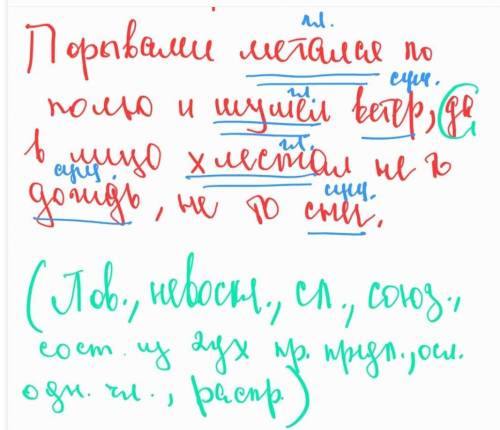 гл.
Порывами метался по
сущ.
гл.
полю и шумел ветер, да
гл.
в лицо хлестал не то
сущ. сущ.
дождь, не то снег.
(Пов., невоскл., сл., союз.,
сост. из 2ух пр. предл., осл.
одн. чл., распр.)